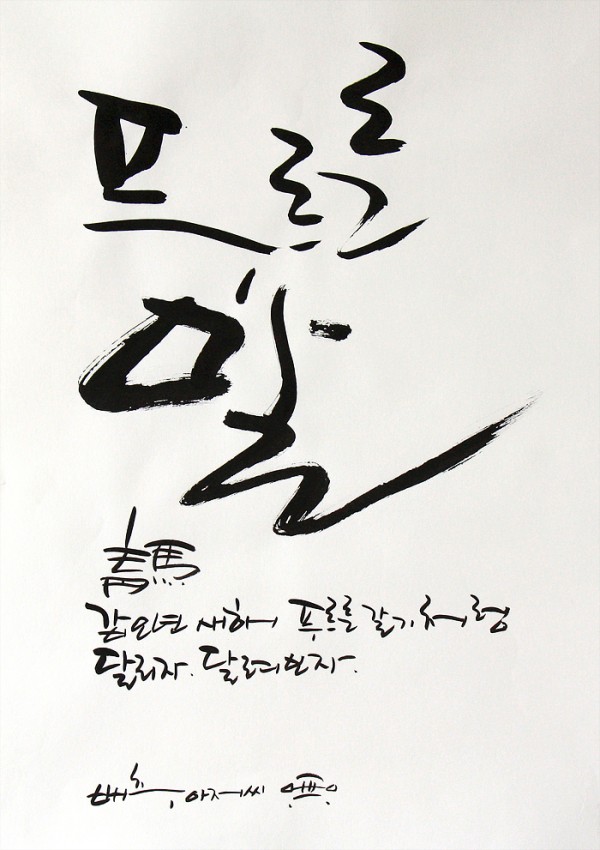 푸르른
말
靑馬
갑오년 새해 푸르른 갈기처럼
달리자. 달려보자.
배추아저씨